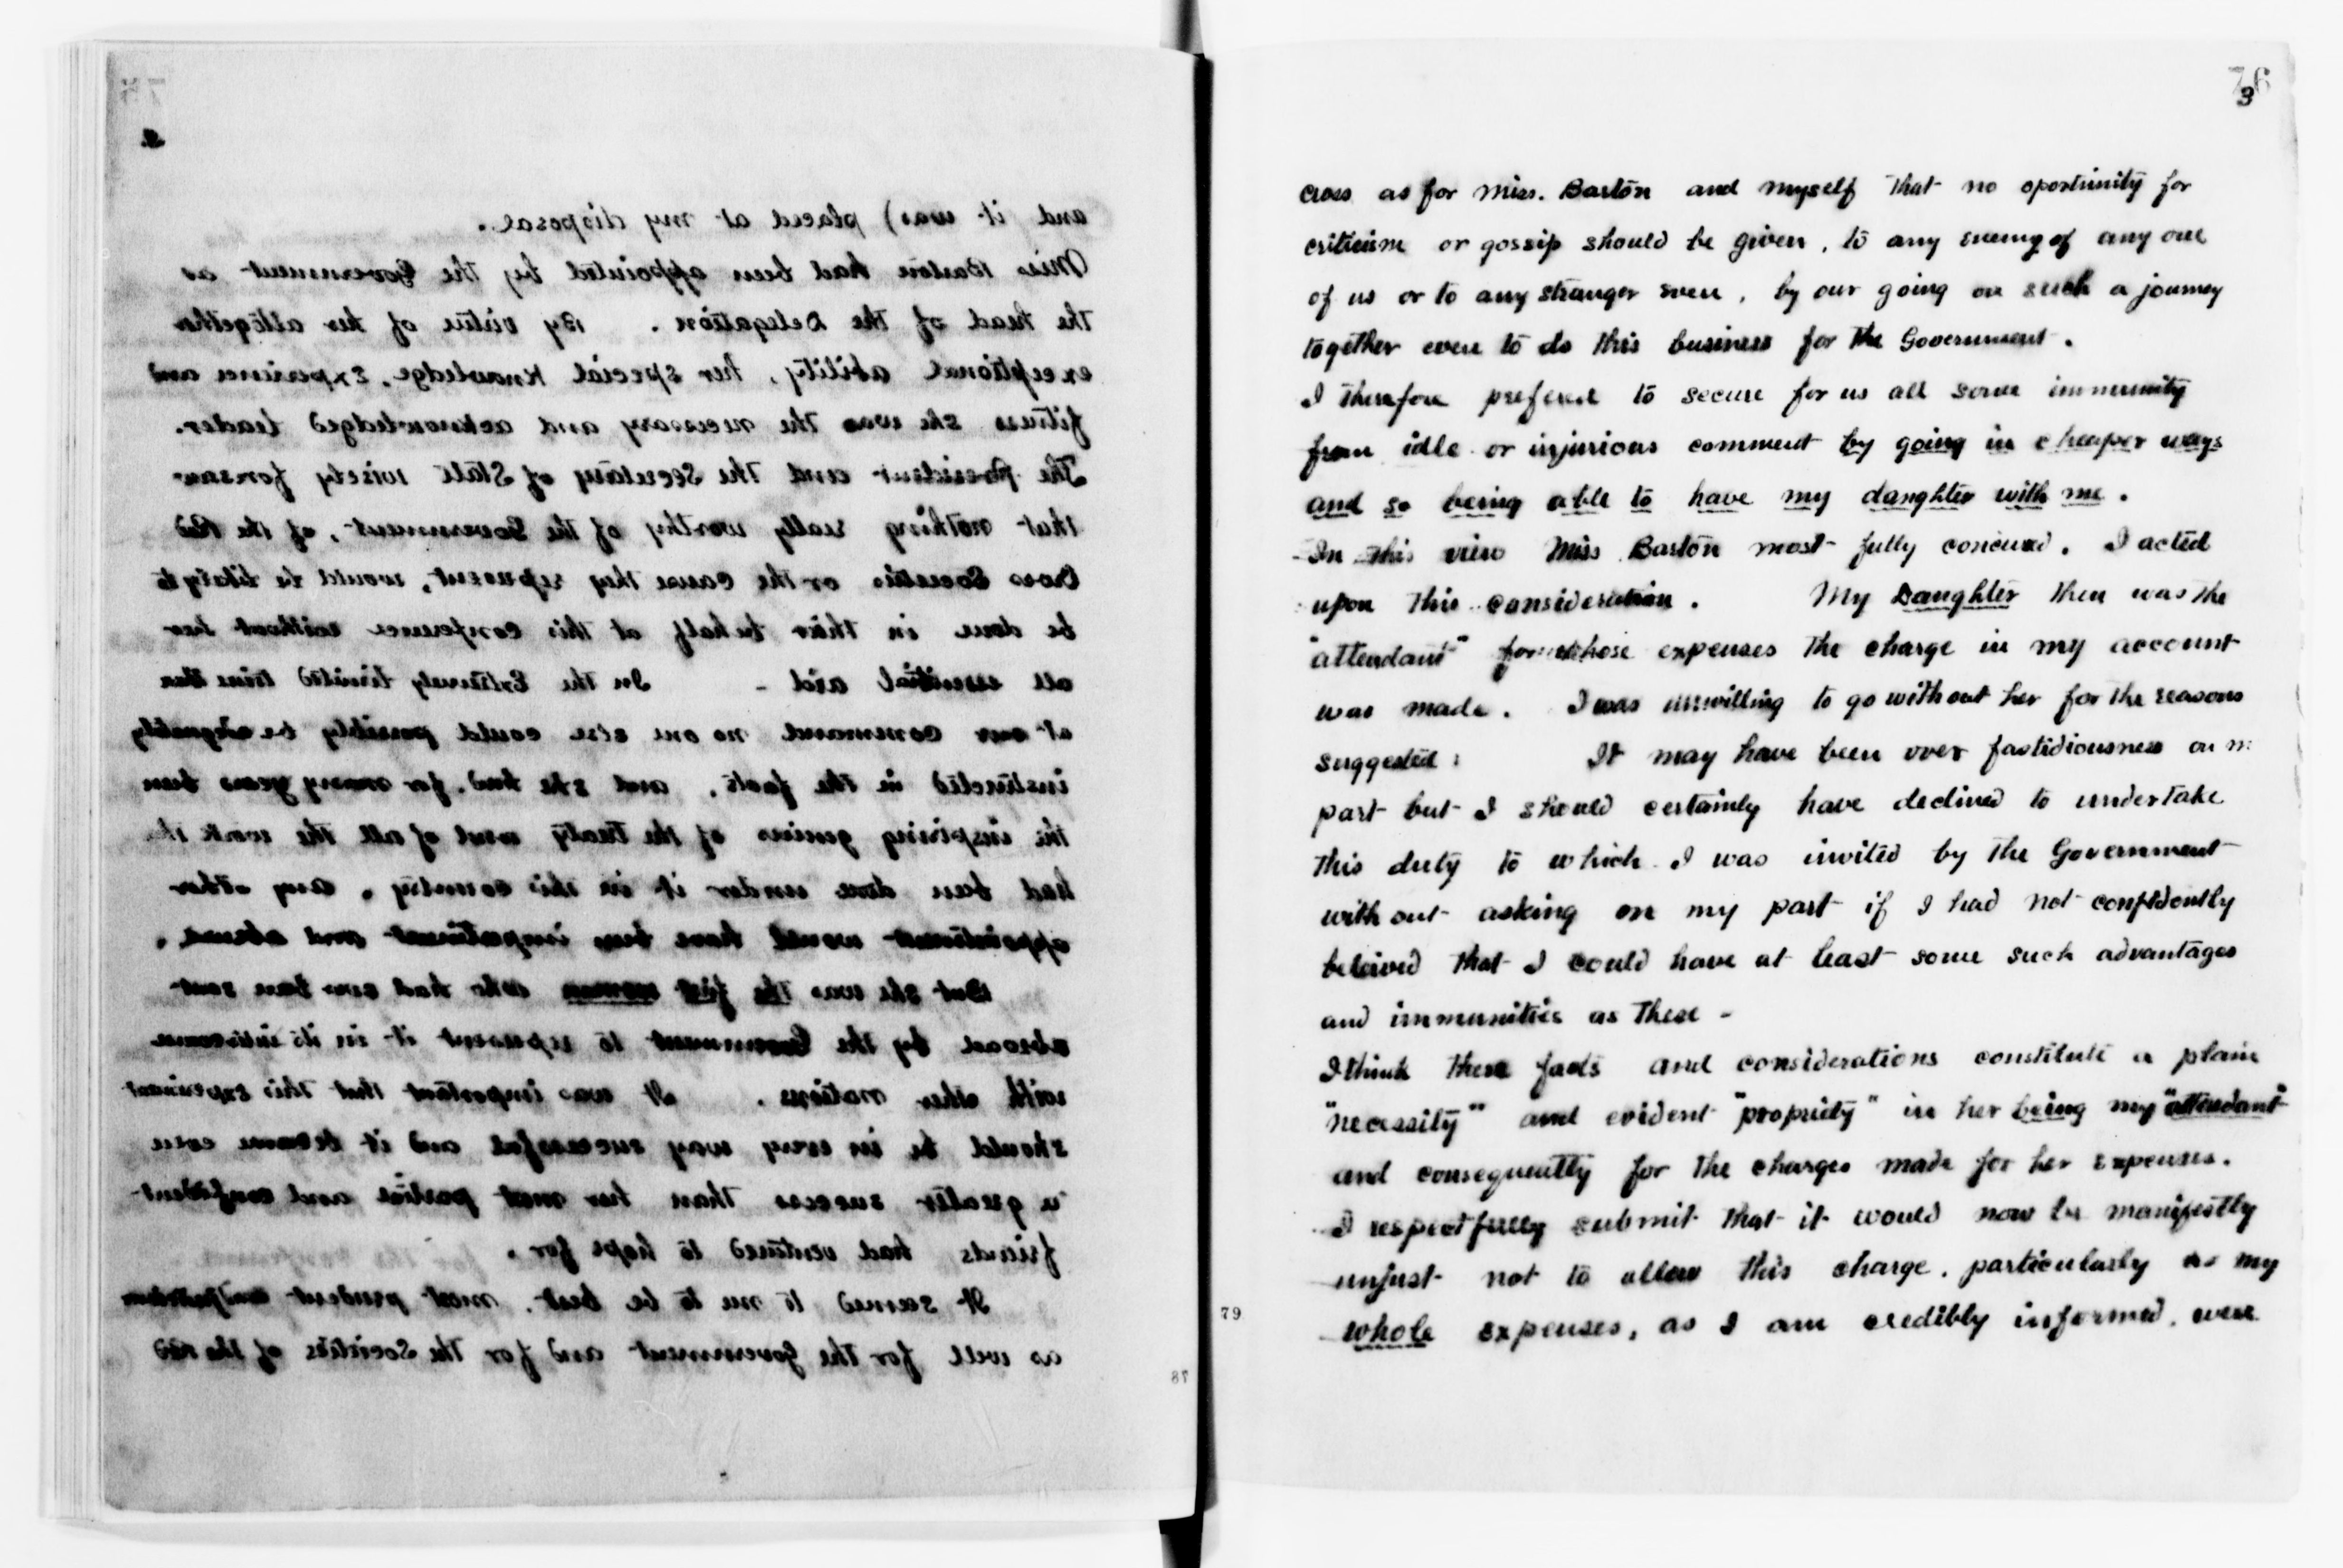 75
2.
and it was) placed at my disposal.
Miss Barton had been appointed by the Government as
the head of the Delegation. By virtue of her altogether
exceptional ability, her special knowledge, experience and
fitness she was the necessary and acknowledged leader.
The President and the Secretary of State wisely forsaw
that nothing really worthy of the Government, of the Red
Cross Societies or the cause they represent, would be likely to
be done in their behalf at this conference without her
all essential aid - In the Extremely limited time then
at our command no one else could possibly be adequately
instructed in the facts, and she had, for many years been
the inspiring genius of the Treaty and of all the work
had been done under it in this country. Any other
appointment would have been impertinent and absurd.
But she was the first woman who had ever been sent
abroad by the Government to represent it in its intercourse
with other nations. It was important that this experiment
should be in every way successful and it became even
a greater success than her most partial and confident
friends had ventured to hope for.
It seemed to me to be best, most prudent
as well for the Government and for the Societies of the Red
78
76
3
cross as for Miss. Barton and myself that no oportunity for
criticism or gossip should be given, to any enemy of any one
of us or to any stranger even, by our going on such a journey
together even to do this business for the Government.
I therefore prefered to secure for us all some immunity
from idle or injurious comment by going in cheaper ways
and so being able to have my daughter with me.
In this view Miss Barton most fully concurred. I acted
upon this consideration. My Daughter then was the
"attendant" for whose expenses the charge in my account
was made. I was unwilling to go without her for the reasons
suggested: It may have been over fastidiousness on m
part but I should certainly have declined to undertake
this duty to which I was invited by the Government
without asking on my part if I had not confidently
beleived that I could have at least some such advantages
and immunities as these -
I think these facts and considerations constitute a plain
"necessity" and evident "propriety" in her being my "attendant"
and consequently for the charges made for her expenses.
I respectfully submit that it would now be manifestly
unjust not to allow this charge, particularly as my
whole expenses, as I am credibly informed, were
79